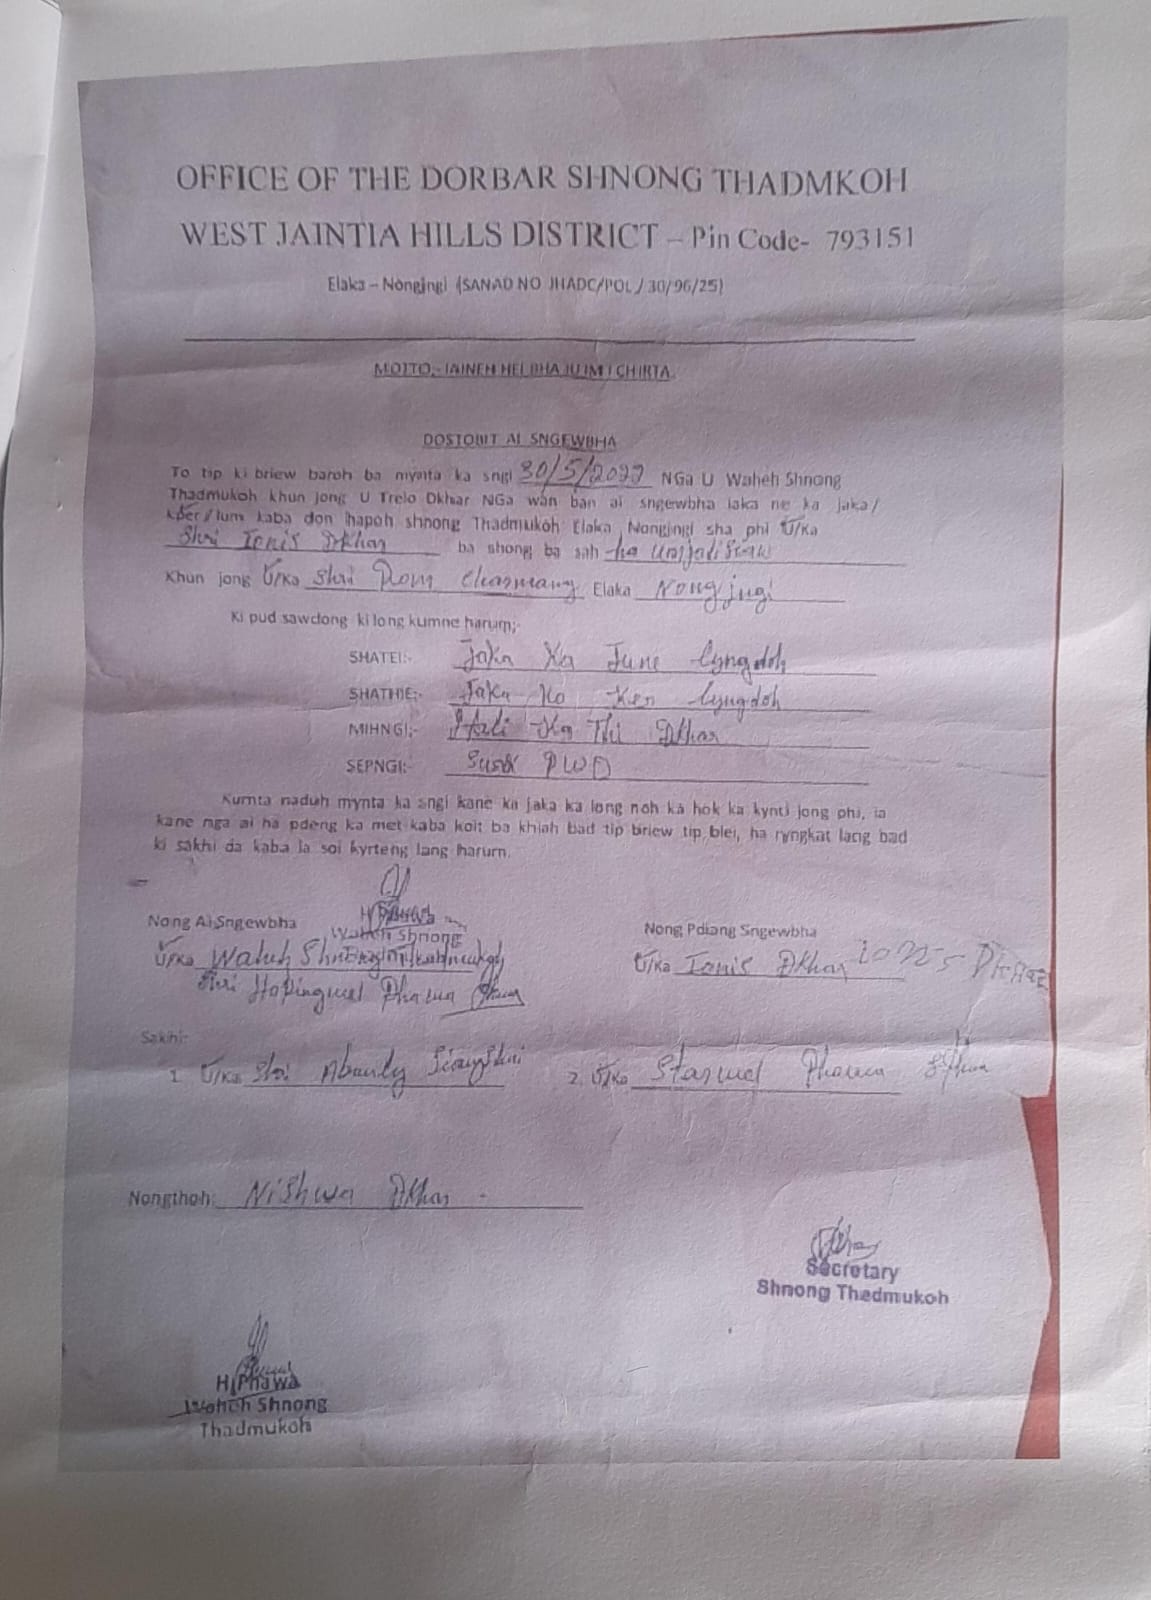 OFFICE OF THE DORBAR SHNONG THADMKOH
WEST JAINTIA HILLS DISTRICT – Pin Code- 793151
Elaka – Nongjngi (SANAD NO JHADC/POL / 30/96/25)
MOTTO,- IAINEH HEI BHA IU IM I CHIRTA
DOSTOBIT AI SNGEWBHA
To tip ki briew baroh ba mynta ka sngi 30/5/2022 NGa U Waheh Shnong
Thadmukoh khun jong U Trelo Dkhar NGa wan ban ai sngewbha iaka ne ka jaka/
kper/lum kaba don hapoh shnong Thadmukoh Elaka Nongjngi sha phi U/Ka
Shri Ionis Dkhar ba shong ba sah ha Umjalisiaw
Khun jong U/Ka Shri Rom Elaka Nongjngi
Ki pud sawdong ki long kumne harum;-
SHATEI:- Jaka Ka June Lyngdoh
SHATHIE:- Jaka Ka Ken Lyngdoh
MIHNGI;- Ka Thi Dkhar
SEPNGI:- Surok PWD
Kumta naduh mynta ka sngi kane ka jaka ka long noh ka hok ka kynti jong phi, ia
kane nga ai ha pdeng ka met kaba koit ba khiah bad tip briew tip blei, ha ryngkat lang bad
ki sakhi da kaba la soi kyrteng lang harum.
Nong Ai Sngewbha
Waheh Shnong
Nong Pdiang Sngewbha
U/Ka Waheh
U/Ka Ionis Dkhar Ionis Dkhar
Shri Hapingwel Phawa
Sakhi:-
1. U/Ka Shri 2. U/Ka Starwel Phawa
Nongthoh: Nishwa Dkhar
Secretary
Shnong Thadmukoh
H Phawa
Waheh Shnong
Thadmukoh